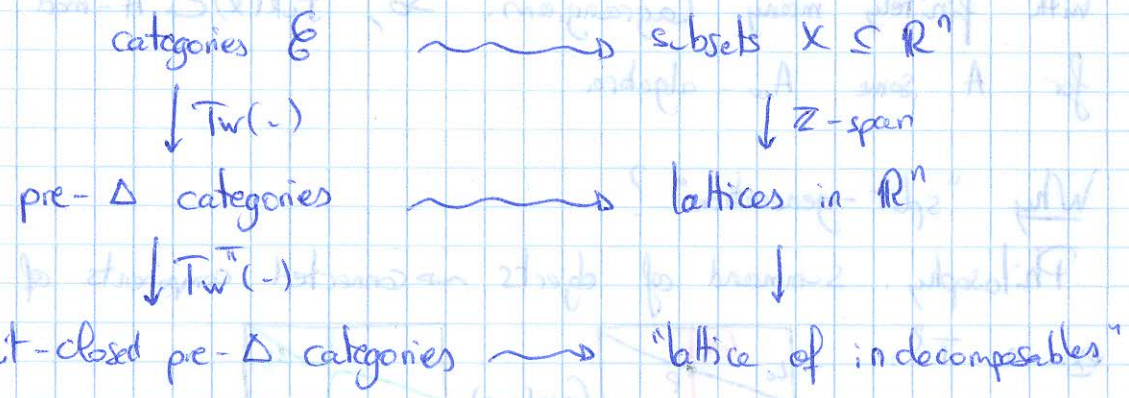 categories 𝓔 ⇝ subsets X ⊆ ℝⁿ
↓ Tw(-) ↓ ℤ-span
pre-Δ categories ⇝ lattices in ℝⁿ
↓ Tw^π(-) ↓
t-closed pre-Δ categories ⇝ "lattice of indecomposables"